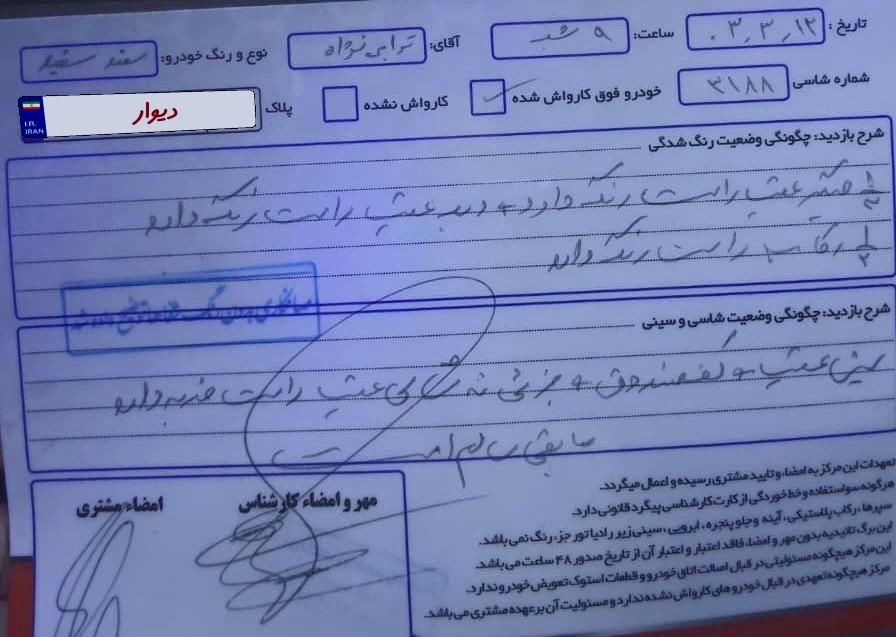 تاریخ: ۰۳,۳,۱۲ ساعت: ۹ شب آقای: ترابی نژاد نوع و رنگ خودرو: سمند سفید
شماره شاسی ۳۱۸۸ خودرو فوق کارواش شده ✓ کارواش نشده پلاک دیوار
I.R. IRAN
شرح بازدید: چگونگی وضعیت رنگ شدگی
۱/۲ گلگیر عقب راست رنگ دارد + درب عقب راست رنگ دارد
۱/۲ رکاب راست رنگ دارد
صافکاری بدون رنگ توضیح داده شد
شرح بازدید: چگونگی وضعیت شاسی و سینی
سینی عقب + کفصندوق + جزئی ته شاسی عقب راست ضربه دارد
مابقی سالم است
تعهدات این مرکز به امضاء و تایید مشتری رسیده و اعمال میگردد.
هرگونه سواستفاده و خط خوردگی از کارت کارشناسی پیگرد قانونی دارد.
سپرها، رکاب پلاستیکی، آینه و جلو پنجره، ابرویی، سینی زیر رادیاتور جزء رنگ نمی باشد.
این برگ تائیدیه بدون مهر و امضاء فاقد اعتبار و اعتبار آن از تاریخ صدور ۴۸ ساعت می باشد.
این مرکز هیچگونه مسئولیتی در قبال اصالت اتاق خودرو و قطعات استوک تعویض خودرو ندارد.
مرکز هیچگونه تعهدی در قبال خودرو های کارواش نشده ندارد و مسئولیت آن بر عهده مشتری می باشد.
مهر و امضاء کارشناس
امضاء مشتری